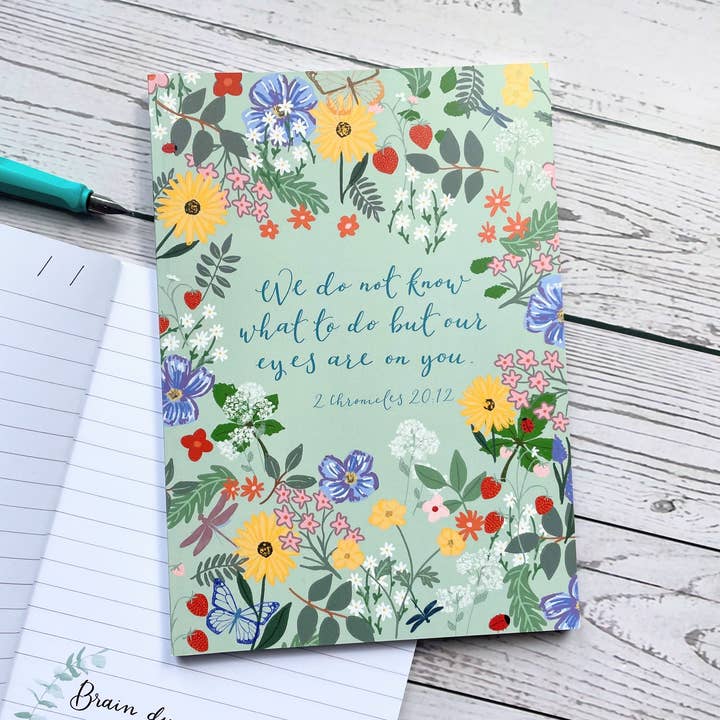 We do not know
what to do but our
eyes are on you.
2 Chronicles 20.12
/ /
Brain